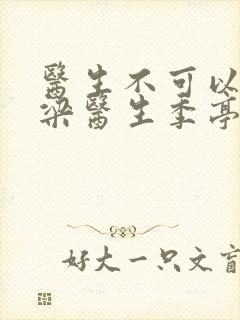 醫生不可以
梁醫生季亭
好大一只文盲